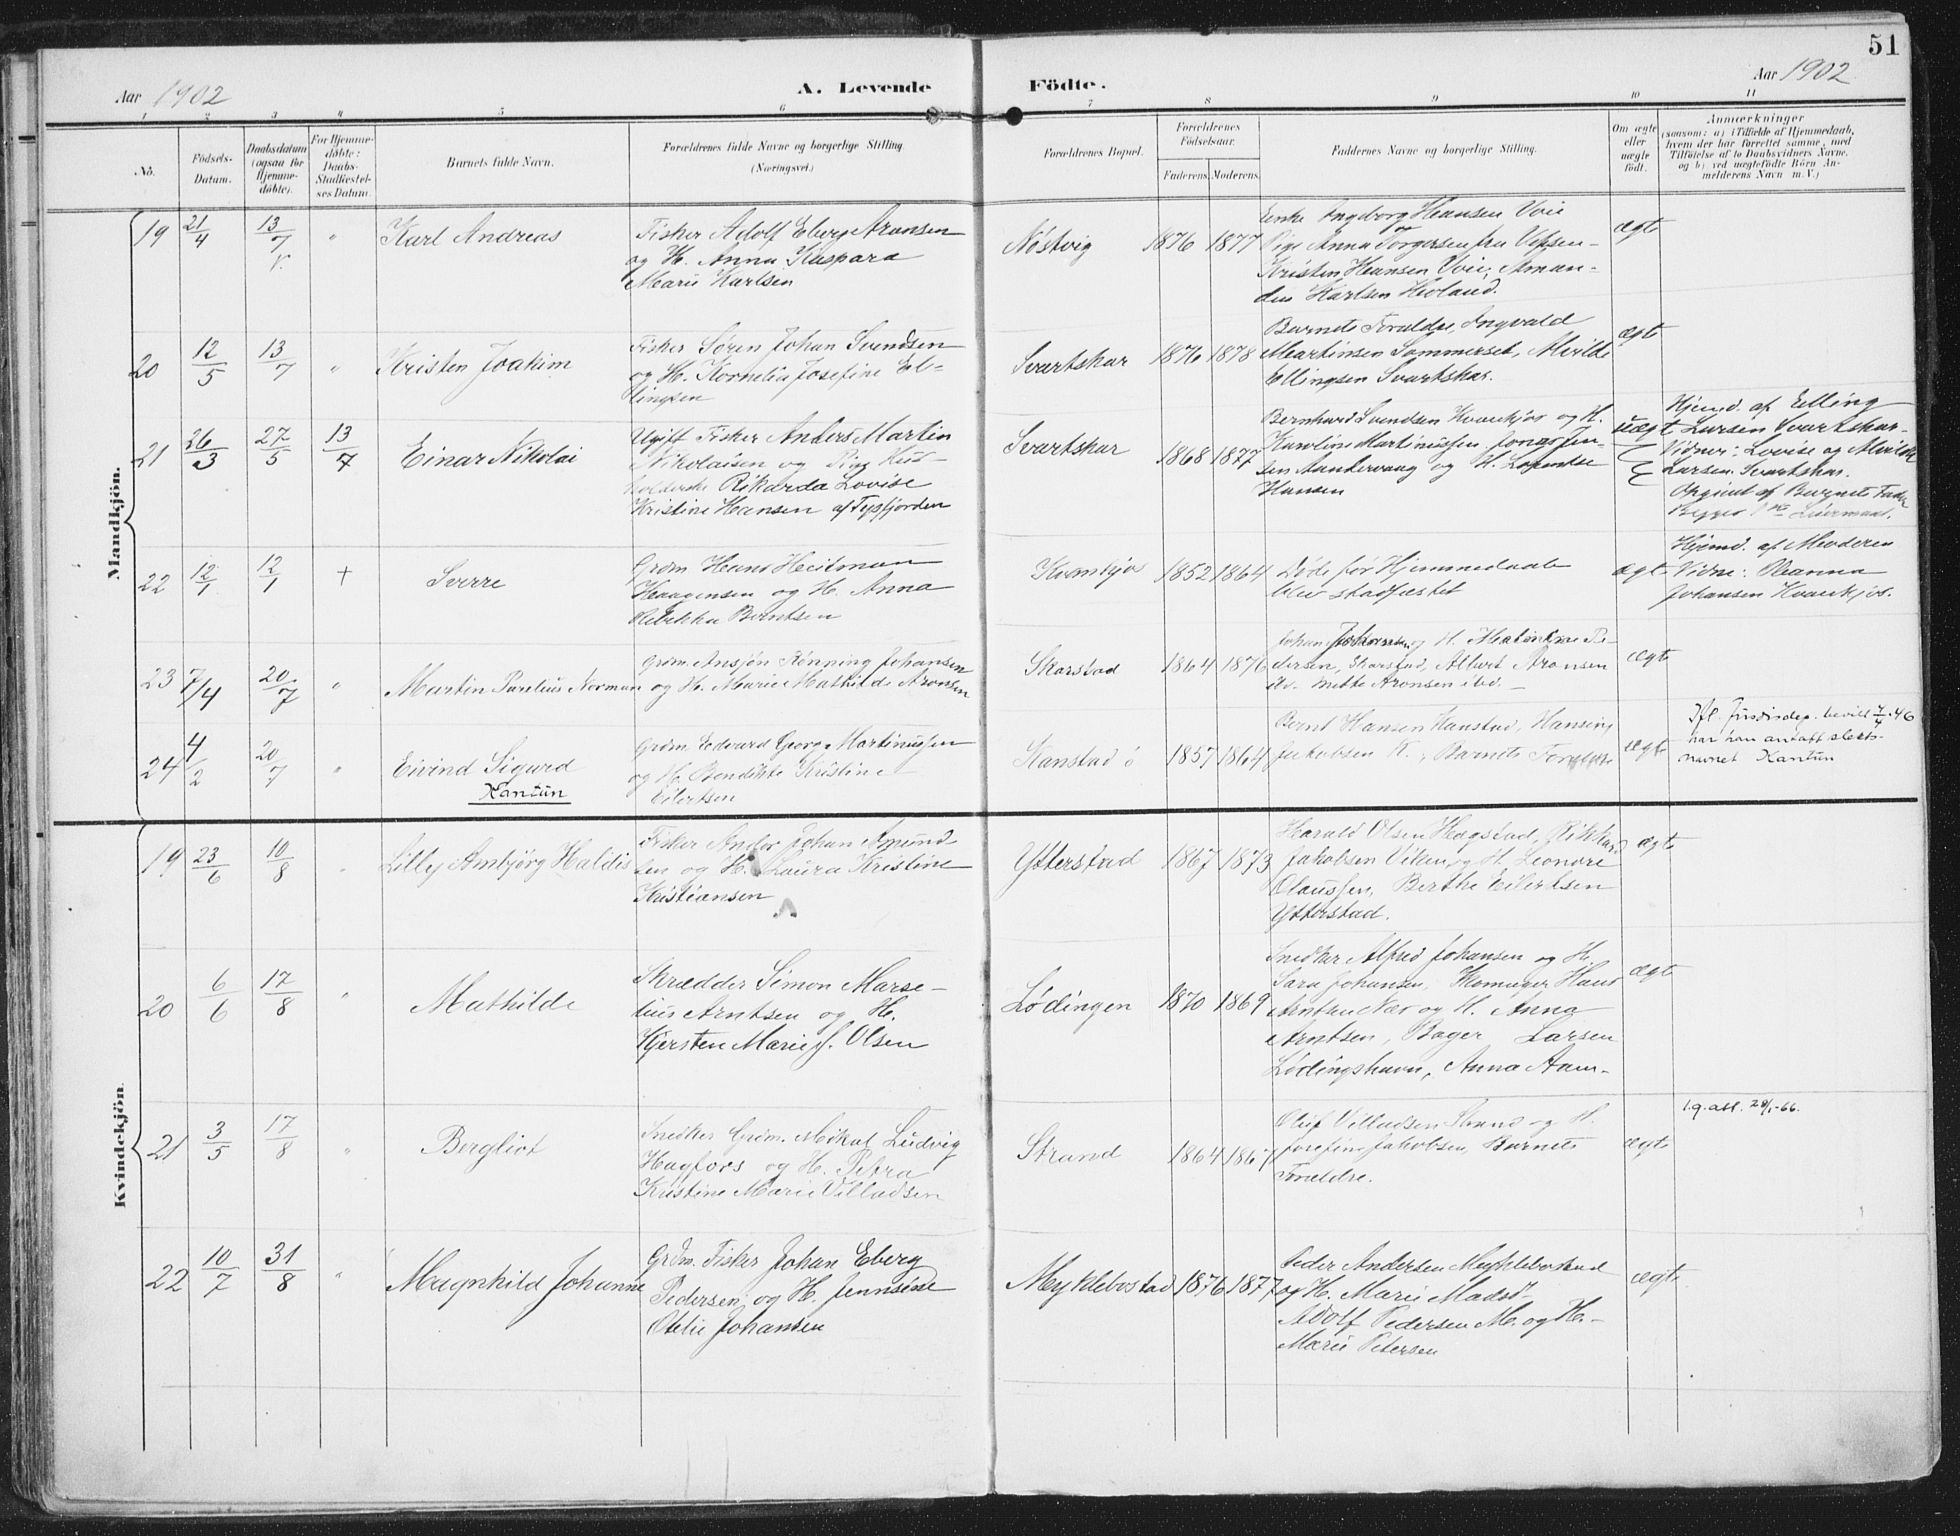 51
Aar 1902
A. Levende
Födte.
Aar 1902
1 2 3 4 5 6 7 8 9 10 11
No.
Födsels-
Datum.
Daabsdatum
(ogsaa for
Hjemme-
döbte).
For Hjemme-
döbte:
Daabs-
Stadfæstel-
ses Datum.
Barnets fulde Navn.
Forældrenes fulde Navne og borgerlige Stilling
(Næringsvei.)
Forældrenes Bopæl.
Forældrenes
Födselsaar.
Faderens. Moderens.
Faddernes Navne og borgerlige Stilling.
Om ægte
eller
uægte
født.
Anmærkninger
(saasom: a) i Tilfælde af Hjemmedaab,
hvem der har forrettet samme, med
Tilföielse af to Daabsvidners Navne.
og b) ved uægtefödte Börn An-
melderens Navn m. V.)
Mandkjön.
19 21/4 13/7 " Karl Andreas
Fisker Adolf Eberg Aronsen
og H. Anna Kaspara
Marie Karlsen
Nöstvig 1876 1877
Enke Ingeborg Hansen Voie
Pige Anna Torgersen fra
Kristen Hansen Voie, Aman-
dus Karlsen Hovland.
ægte
20 12/5 13/7 " Kristen Joakim
Fisker Sören Johan Svendsen
og H. Kornelia Josefine El-
lingsen
Svartskar 1876 1878
Barnets Foreldre, Ingvald
Martinsen Sommerset, Alvilde
Ellingsen Svartskar.
ægte
21 26/3 27/5 13/7 Einar Nikolai
Ugift Fisker Anders Martin
Nikolaisen og Pige Hus-
holderske Rikarda Lovise
Kristine Hansen af Tysfjorden
Svartskar 1868 1877
Bernhard Svendsen Kvankjos og H.
Karoline Martinussen, Jen-
sen og H. Lorentse
Hansen
uægt
Hjemd. af Elling
Larsen Svartskar.
Vidner: Lovise og Alvilde
Larsen Svartskar.
Opgivet af Barnets Fader
Begges 1ste Leiermaal.
22 12/1 12/1 + Sverre
Grdm. Hans Heitman
Haagensen og H. Anna
Rebekka Berntsen
Kvankjos 1852 1864
Døde før Hjemmedaab
blev stadfæstet
ægt
Hjemd. af Moderen
Vidne: Oleanna
Johansen Kvankjos.
23 7/4 20/7 " Martin Parelius Norman
Grdm. Ansjön Rönning Johansen
og H. Marie Mathilde Aronsen
Skarstad 1864 1876
Johan Johansen og H. Pe-
dersen, Skarstad, Albert Aronsen
ibd. Mette Aronsen ibd. –
ægte
24 4/2 20/7 " Eivind Sigurd
Kantun
Grdm. Edvard Georg Martinussen
og H. Bendikte Kristine
Eilertsen
Kanstad ö 1857 1864
Bernt Hansen Kanstad, Hansine
Jakobsen K., Barnets Foreldre
ægte
Ifl. Jusdisdep. bevill. 4/4-46
har han antatt slekts-
navnet Kantun
Kvindekjön.
19 23/6 10/8 Lilly Ambjörg Haldis
Fisker Andor Johan Amund
sen og H. Laura Kristine
Kristiansen
Ytterstad 1867 1873
Harald Olsen Hægstad, Rikhard
Jakobsen Viken og H. Leonore
Olaussen, Berthe Eilertsen
Ytterstad.
ægte
20 6/6 17/8 " Mathilde
Skrædder Simon Marse-
lius Arntsen og H.
Kjersten Marie J. Olsen
Lødingen 1870 1869
Snedker Alfred Johansen og H.
Sara Johansen, Hans
Arntsen Nes og H. Anna
Arntsen, Bager Larsen
Lødingshavn, Anna Aam-
ægte
21 3/5 17/8 " Bergliot
Snedker Grdm. Mikal Ludvig
Hagfors og H. Petra
Kristine Marie Villadsen
Strand 1864 1867
Oluf Villadsen Strand og H.
Josefine Jakobsen, Barnets
Foreldre.
ægte
1.g. att. 28/1-66.
22 10/7 31/8 " Magnhild Johanne
Grdm. Fisker Johan Eberg
Pedersen og H. Jennsine
Otelie Johansen
Myklebostad 1876 1877
Peder Andersen Myklebostad
og H. Marie Madsd.
Adolf Pedersen M. og H.
Marie Petersen
ægte